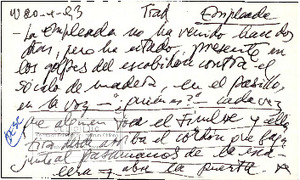 20-4-83 Trad Empleada
- La empleada no ha venido hace dos
días, pero ha estado presente en
los golpes del escobillón contra el
zócalo de madera, en el pasillo,
en la voz —"¿quién es?"— cada vez
que alguien toca el timbre y ella
tira desde arriba el cordón que baja
junto al pasamanos de la esca-
lera y abre la puerta.